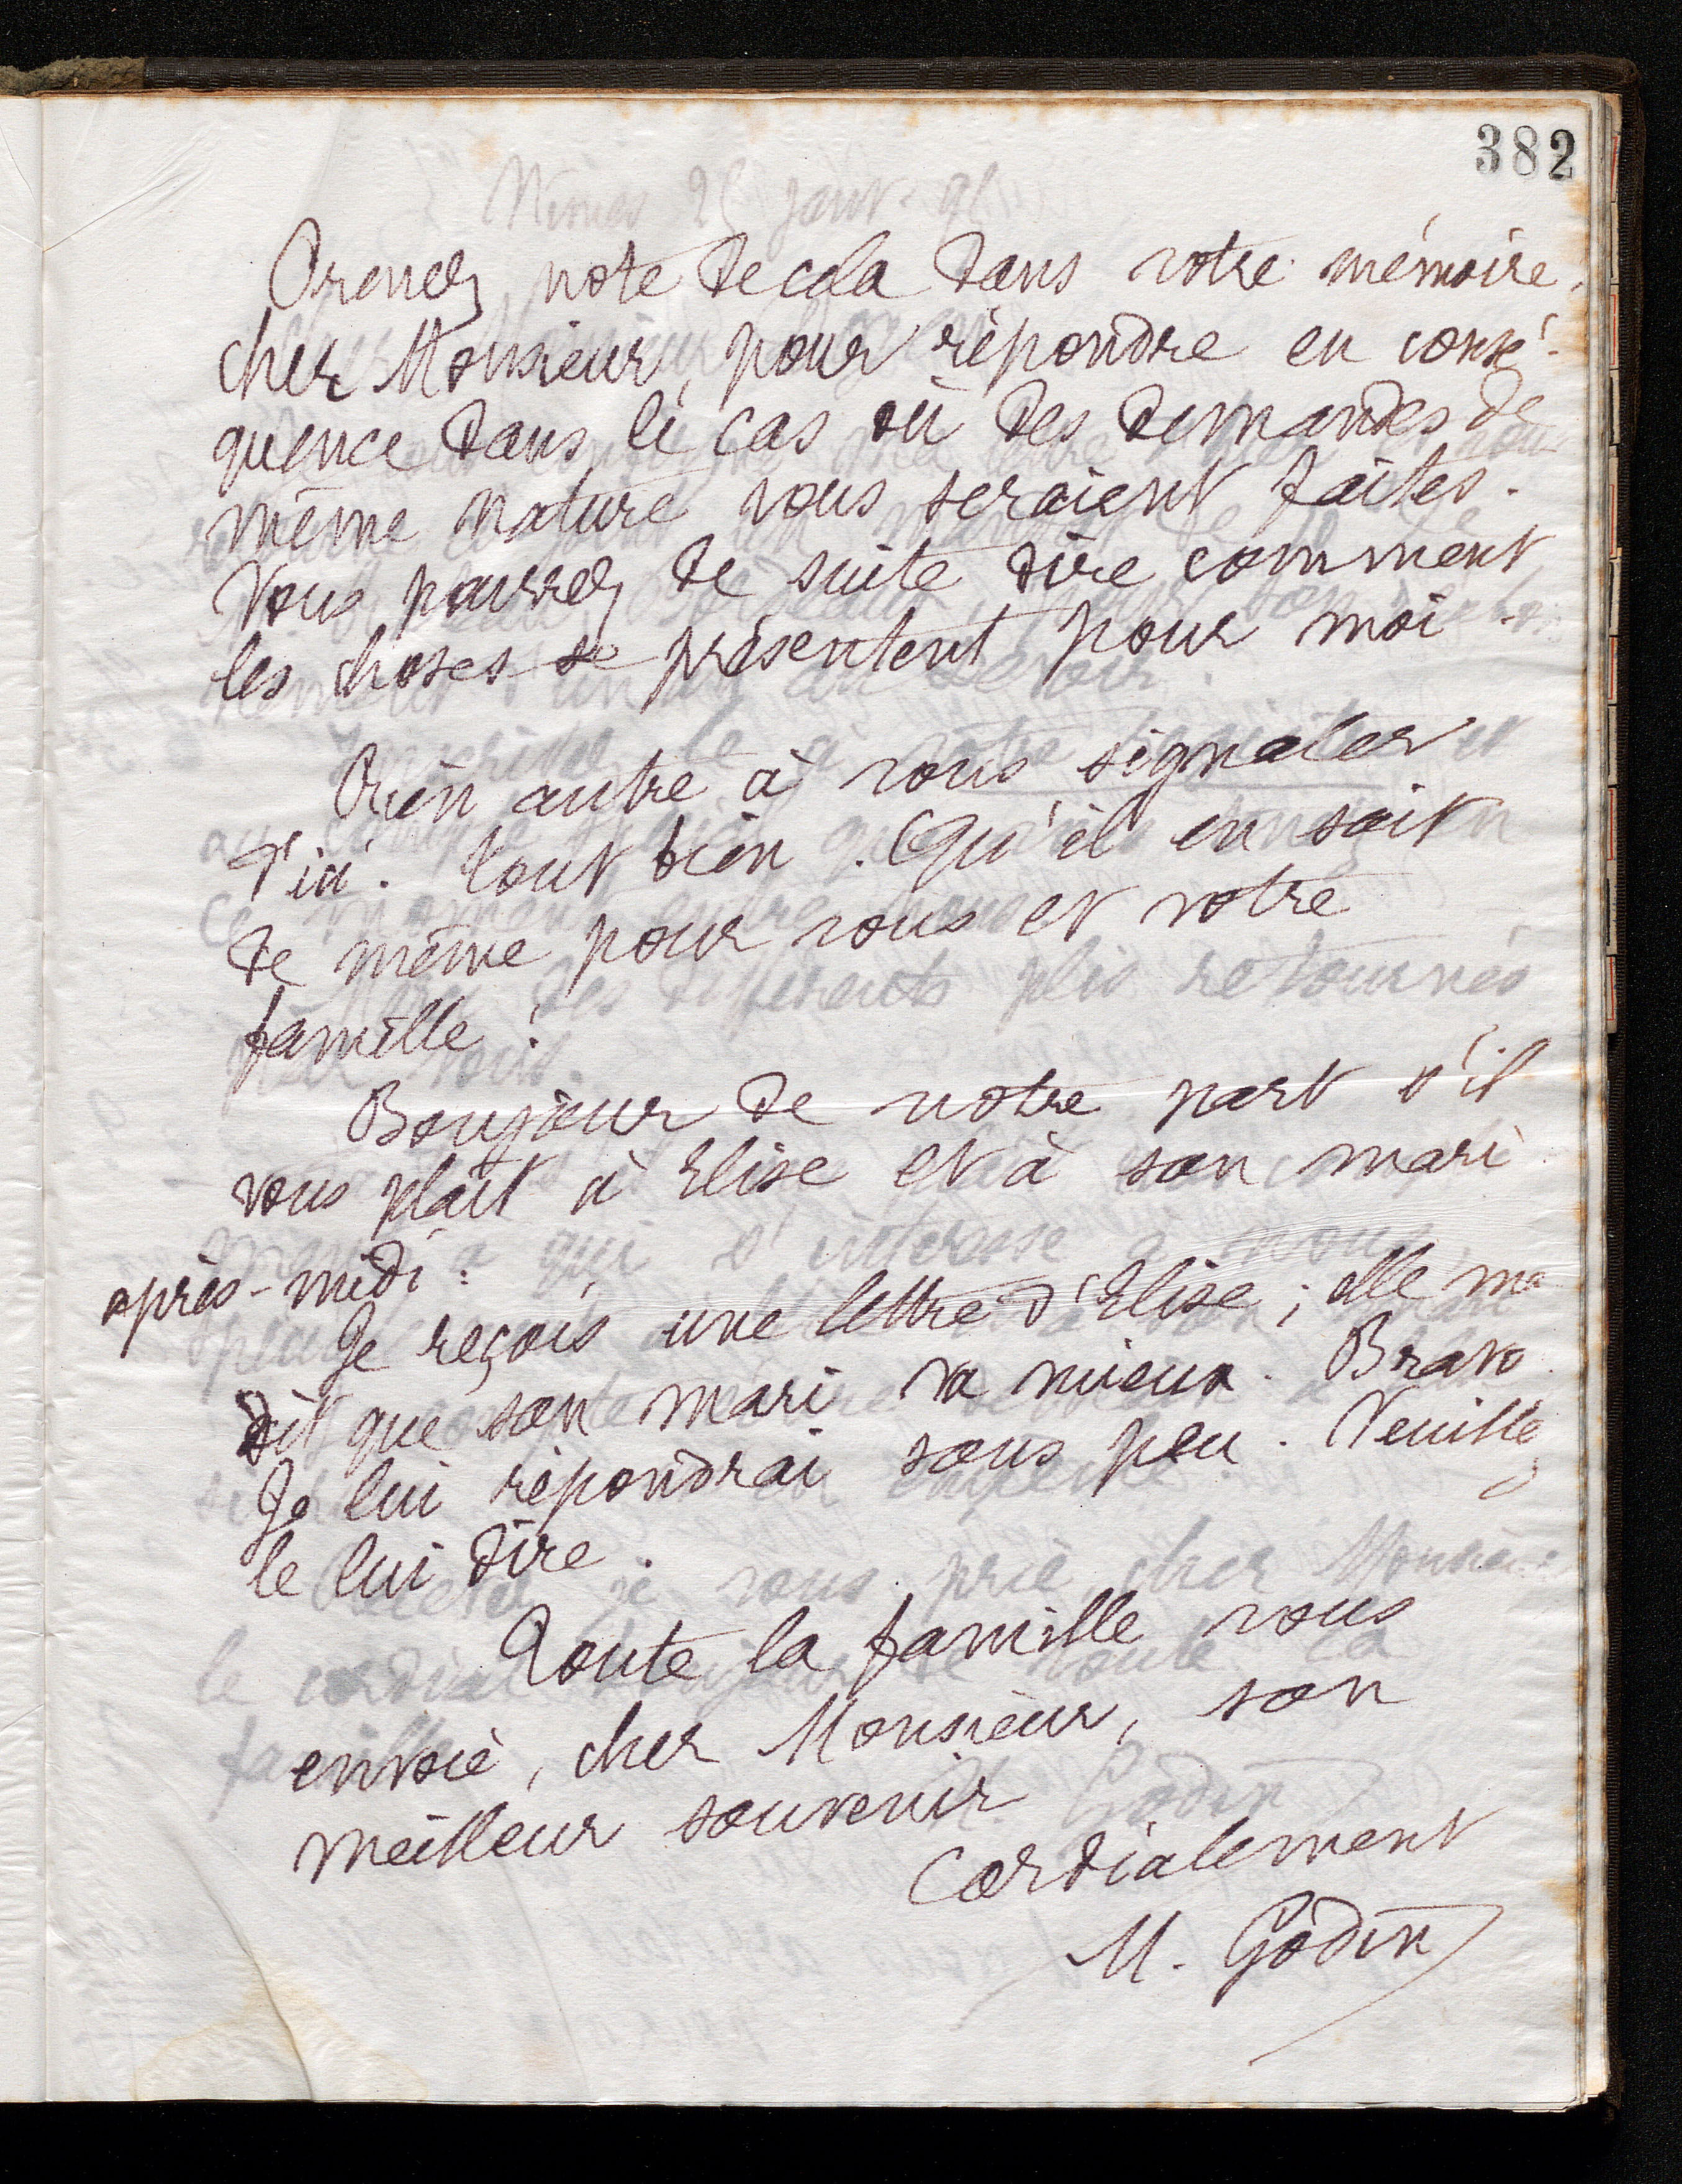 382
Prenez note de cela dans votre mémoire,
cher Monsieur, pour répondre en consé-
quence dans le cas où des demandes de
même nature vous seraient faites.
Vous pourrez de suite dire comment
les choses se présentent pour moi.
Rien autre à vous signaler
d'ici. Tout bien. Qu'il en soit
de même pour vous et votre
famille !
Bonjour de notre part s'il
vous plaît à Elise et à son mari
après-midi :
Je reçois une lettre d'Elise ; elle me
dit que son mari va mieux. Bravo.
Je lui répondrai sous peu. Veuillez
le lui dire.
Toute la famille vous
envoie, cher Monsieur, son
meilleur souvenir
Cordialement
M. Godin